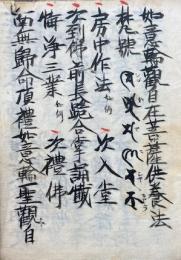 如意輪觀自在菩薩供養法
梵號
房中作法 如例 次入堂
次到佛前長跪合掌誦偈
悔淨三業 如例 次禮佛
南無歸命頂禮如意輪聖觀自